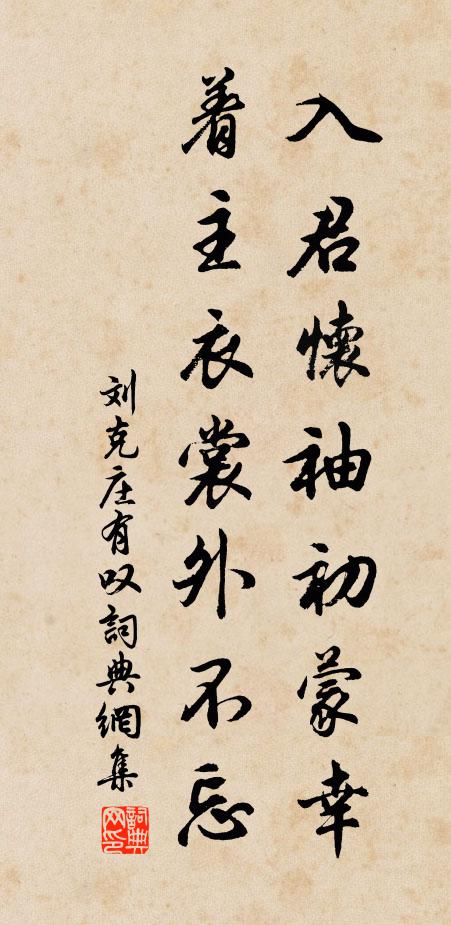 入君懷袖初蒙幸
着主衣裳外不忘
刘克庄有叹詞典網集
詞典
网印